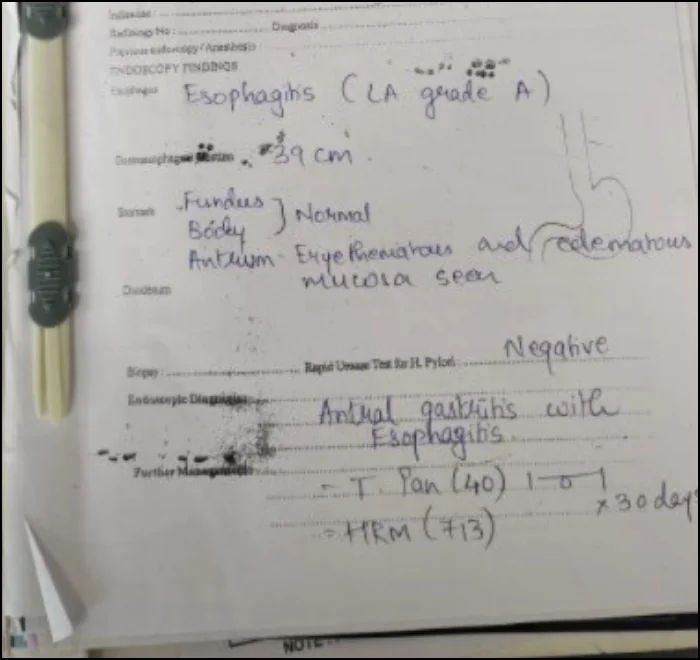 Indication :
Radiology No : Diagnosis
Previous endoscopy / Anesthesia
ENDOSCOPY FINDINGS
Esophagus Esophagitis (LA grade A)
39 cm
Stomach Fundus } Normal
Body
Antrum - Eryethematous and edematous
mucosa seen
Duodenum
Biopsy : Rapid Urease Test for H. Pylori : Negative
Endoscopic Diagnosis
Antral gastritis with
Esophagitis
Further Management
- T. Pan (40) 1-0-1
x 30 days
- HRM (713)
NOTE :